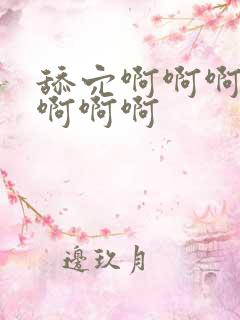 舔穴啊啊啊
啊啊啊
邊玖月